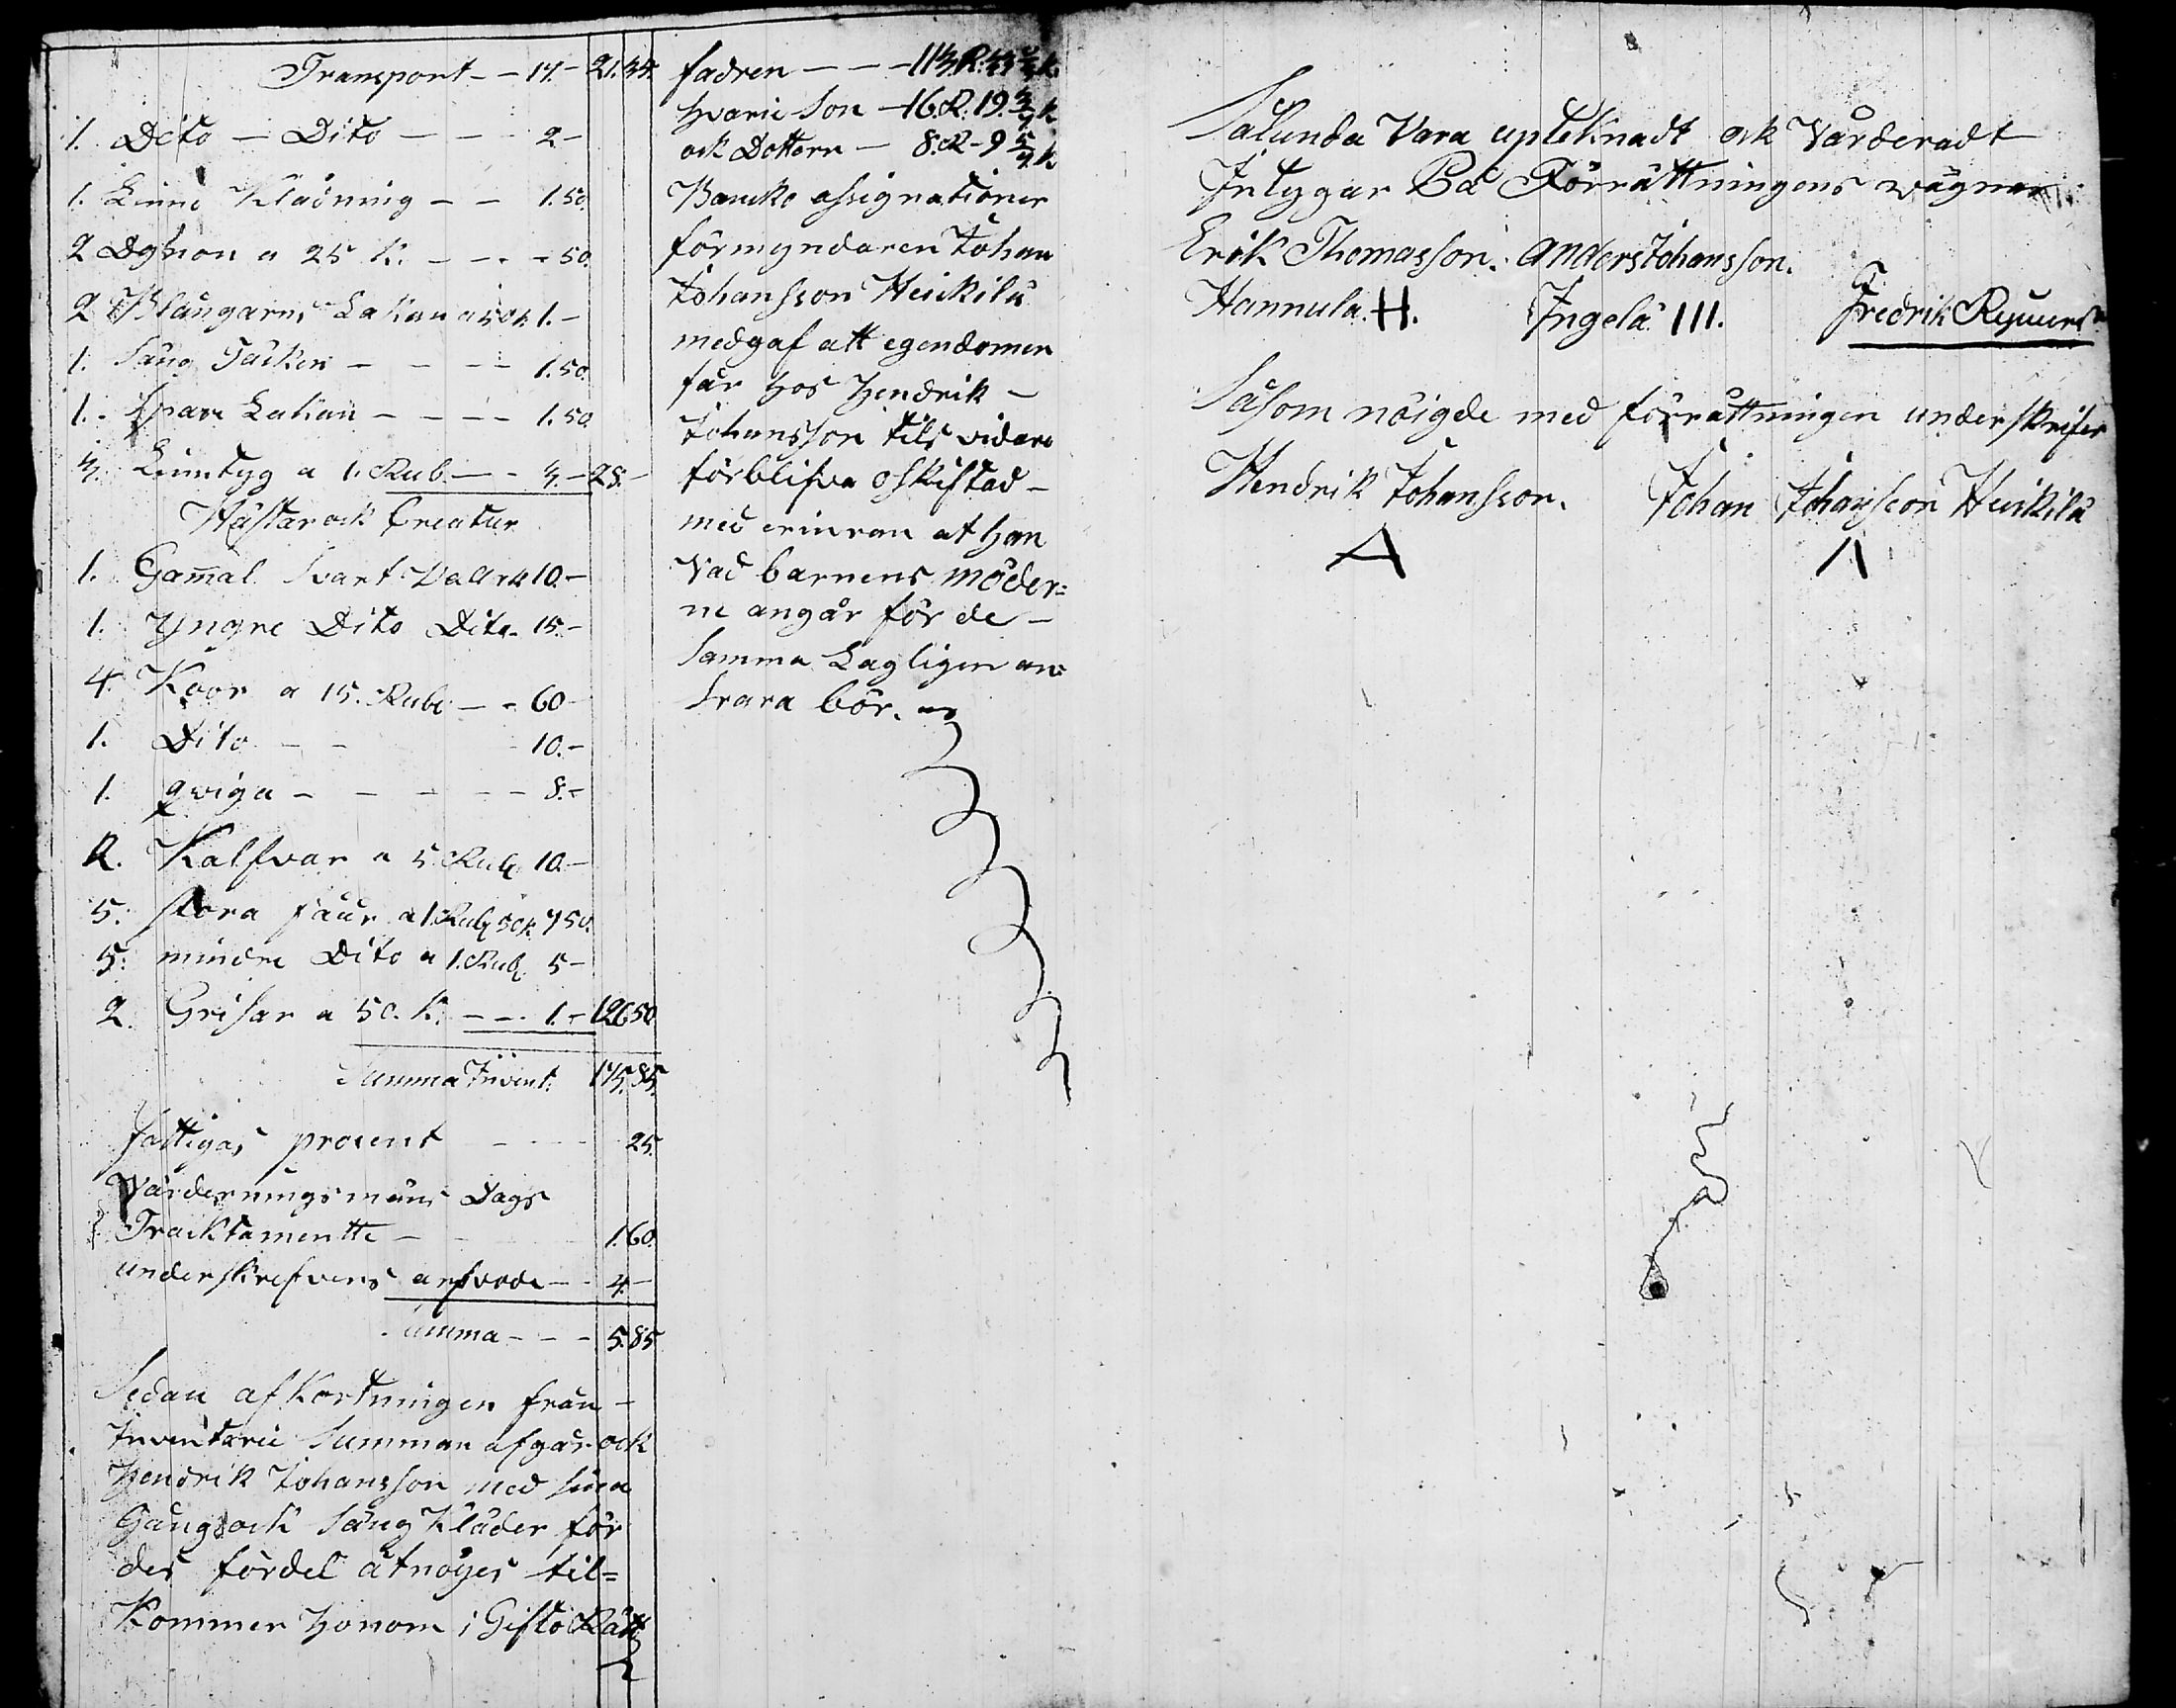 Transport - - 17.- 21.35.
1. Dito - Dito - - - 2-
1. Linne Klädning - - 1.50.
2 Dghon a 25 K. - - - - 50.
2 Blångarns Lakan a 50 k 1.-
1. Säng Täcken - - - - 1.50.
1.- Lakan - - - - 1.50.
3. Linntyg a 1. Rub. - - 3.- 28.-
Hästar ock Creatur
1. Gam̄al Svart Vallak 10.-
1. Yngre Dito Dito. 15.-
4. Koor a 15. Rub. - - 60-
1. Dito - - 10.-
1. qviga - - - - - 8.-
2. Kalfvar a 5 Rub. 10.-
5. stora fåur a 1 Rub 50 k 7 50.
5. mindre Dito a 1. Rub. 5-
2. Grisar a 50. K. - - - 1.- 126 50
Summa Invent. 175.85.
fattigas procent - - - 25.
Värderningsmäns Dags
Tracktamentte - 1.60.
underskrefvens arfvode - - 4.-
Summa - - - 5.85
Sedan afkortningen från -
Inventarii Summan afgår ock
Hendrik Johansson med sina
Gång ock Säng Kläder för
des fördel åtnöjes til=
Kommer honom i Gifto Rätt
fadren - - - 113.R. k.
hvarie Son - 16.R. 19.3/7 k
ock Dottern - 8.R - 9 5/7 k
Bancko assignationer
förmyndaren Johan
Johansson Heickilä
medgaf att egendomen
får hos Hendrik -
Johansson tils vidare
förblifva oskiftad -
med erinran at han
Vad barnens möder=
ne angår för de -
Samma Lagligen an=
svara bör.
Sålunda Vara upteknadt ock Värderadt
Intygar På Förrättningens vägnar
Erik Thomasson. Anders Johansson.
Hannula. H. Ingelä III. Fredrik
Såsom nöigde med förrättningen underskrifer
Hendrik Johansson. Johan Johansson Heickilä
A Λ